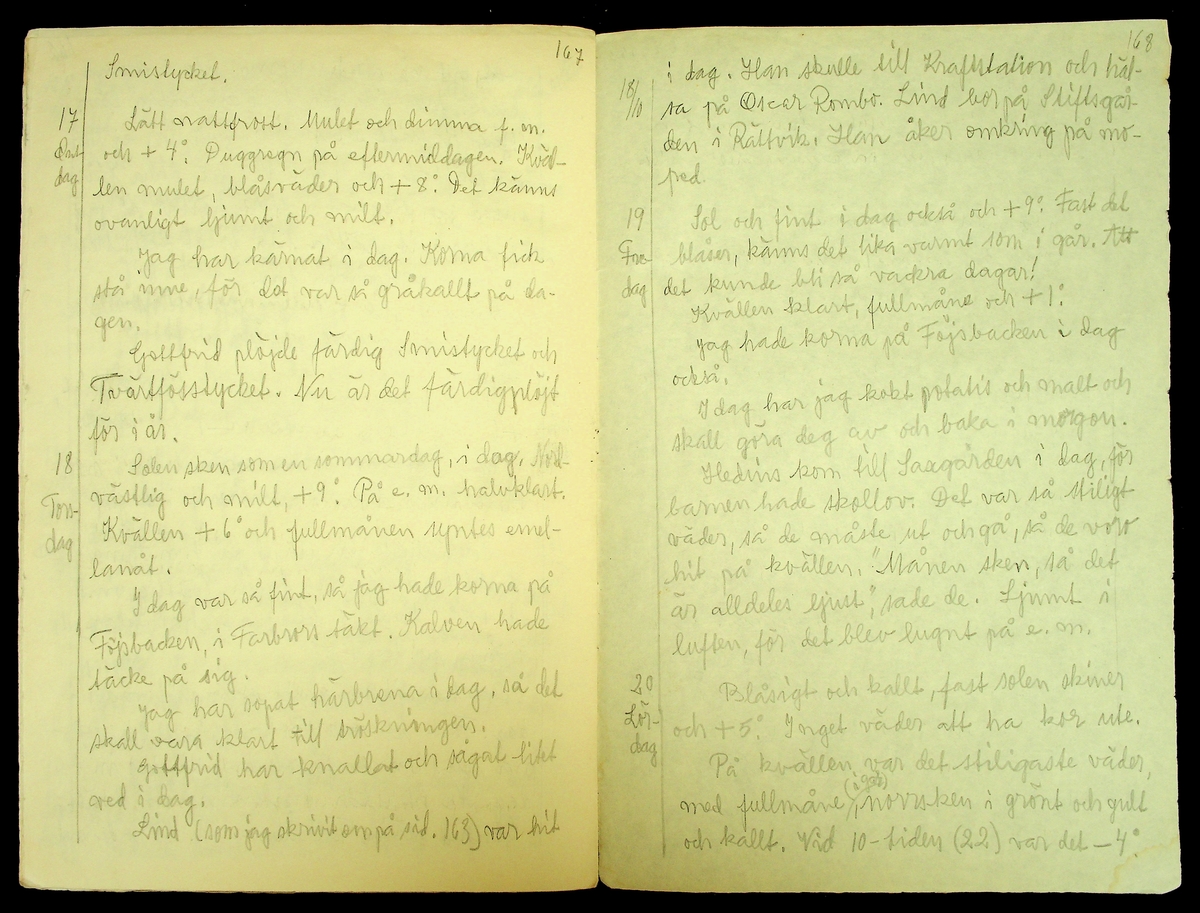 167
Smistycket.
17
Ons-
dag
Lätt nattfrost. Mulet och dimma f. m.
och + 4°. Duggregn på eftermiddagen. Kväl-
len mulet, blåsväder och + 8°. Det känns
ovanligt ljumt och milt.
Jag har kärnat i dag. Korna fick
stå inne, för det var så gråkallt på da-
gen.
Gottfrid plöjde färdig Smistycket och
Tvärtfösstycket. Nu är det färdigplöjt
för i år.
18
Tors-
dag
Solen sken som en sommardag, i dag. Nord-
västlig och milt, +9°. På e. m. halvklart.
Kvällen + 6° och fullmånen syntes emel-
lanåt.
I dag var så fint, så jag hade korna på
Föjsbacken, i Farbrors täkt. Kalven hade
täcke på sig.
Jag har sopat härbrena i dag, så det
skall vara klart till tröskningen.
Gottfrid har knallat och sågat litet
ved i dag.
Lind (som jag skrivit om på sid. 163) var hit
168
18/10
i dag. Han skulle till Kraftstation och häl-
sa på Oscar Rombo. Lind bor på Stiftsgår-
den i Rättvik. Han åker omkring på mo-
ped.
19
Fre-
dag
Sol och fint i dag också och +9°. Fast det
blåser, känns det lika varmt som i går. Att
det kunde bli så vackra dagar!
Kvällen klart, fullmåne och +1°.
Jag hade korna på Föjsbacken i dag
också.
I dag har jag kokt potatis och malt och
skall göra deg av och baka i morgon.
Hedins kom till Saxgården i dag, för
barnen hade skollov. Det var så stiligt
väder, så de måste ut och gå, så de voro
hit på kvällen. "Månen sken, så det
är alldeles ljust", sade de. Ljumt i
luften, för det blev lugnt på e. m.
20
Lör-
dag
Blåsigt och kallt, fast solen skiner
och +5°. Inget väder att ha kor ute.
På kvällen var det stiligaste väder,
med fullmåne (i går), norrsken i grönt och gult
och kallt. Vid 10-tiden (22) var det – 4°